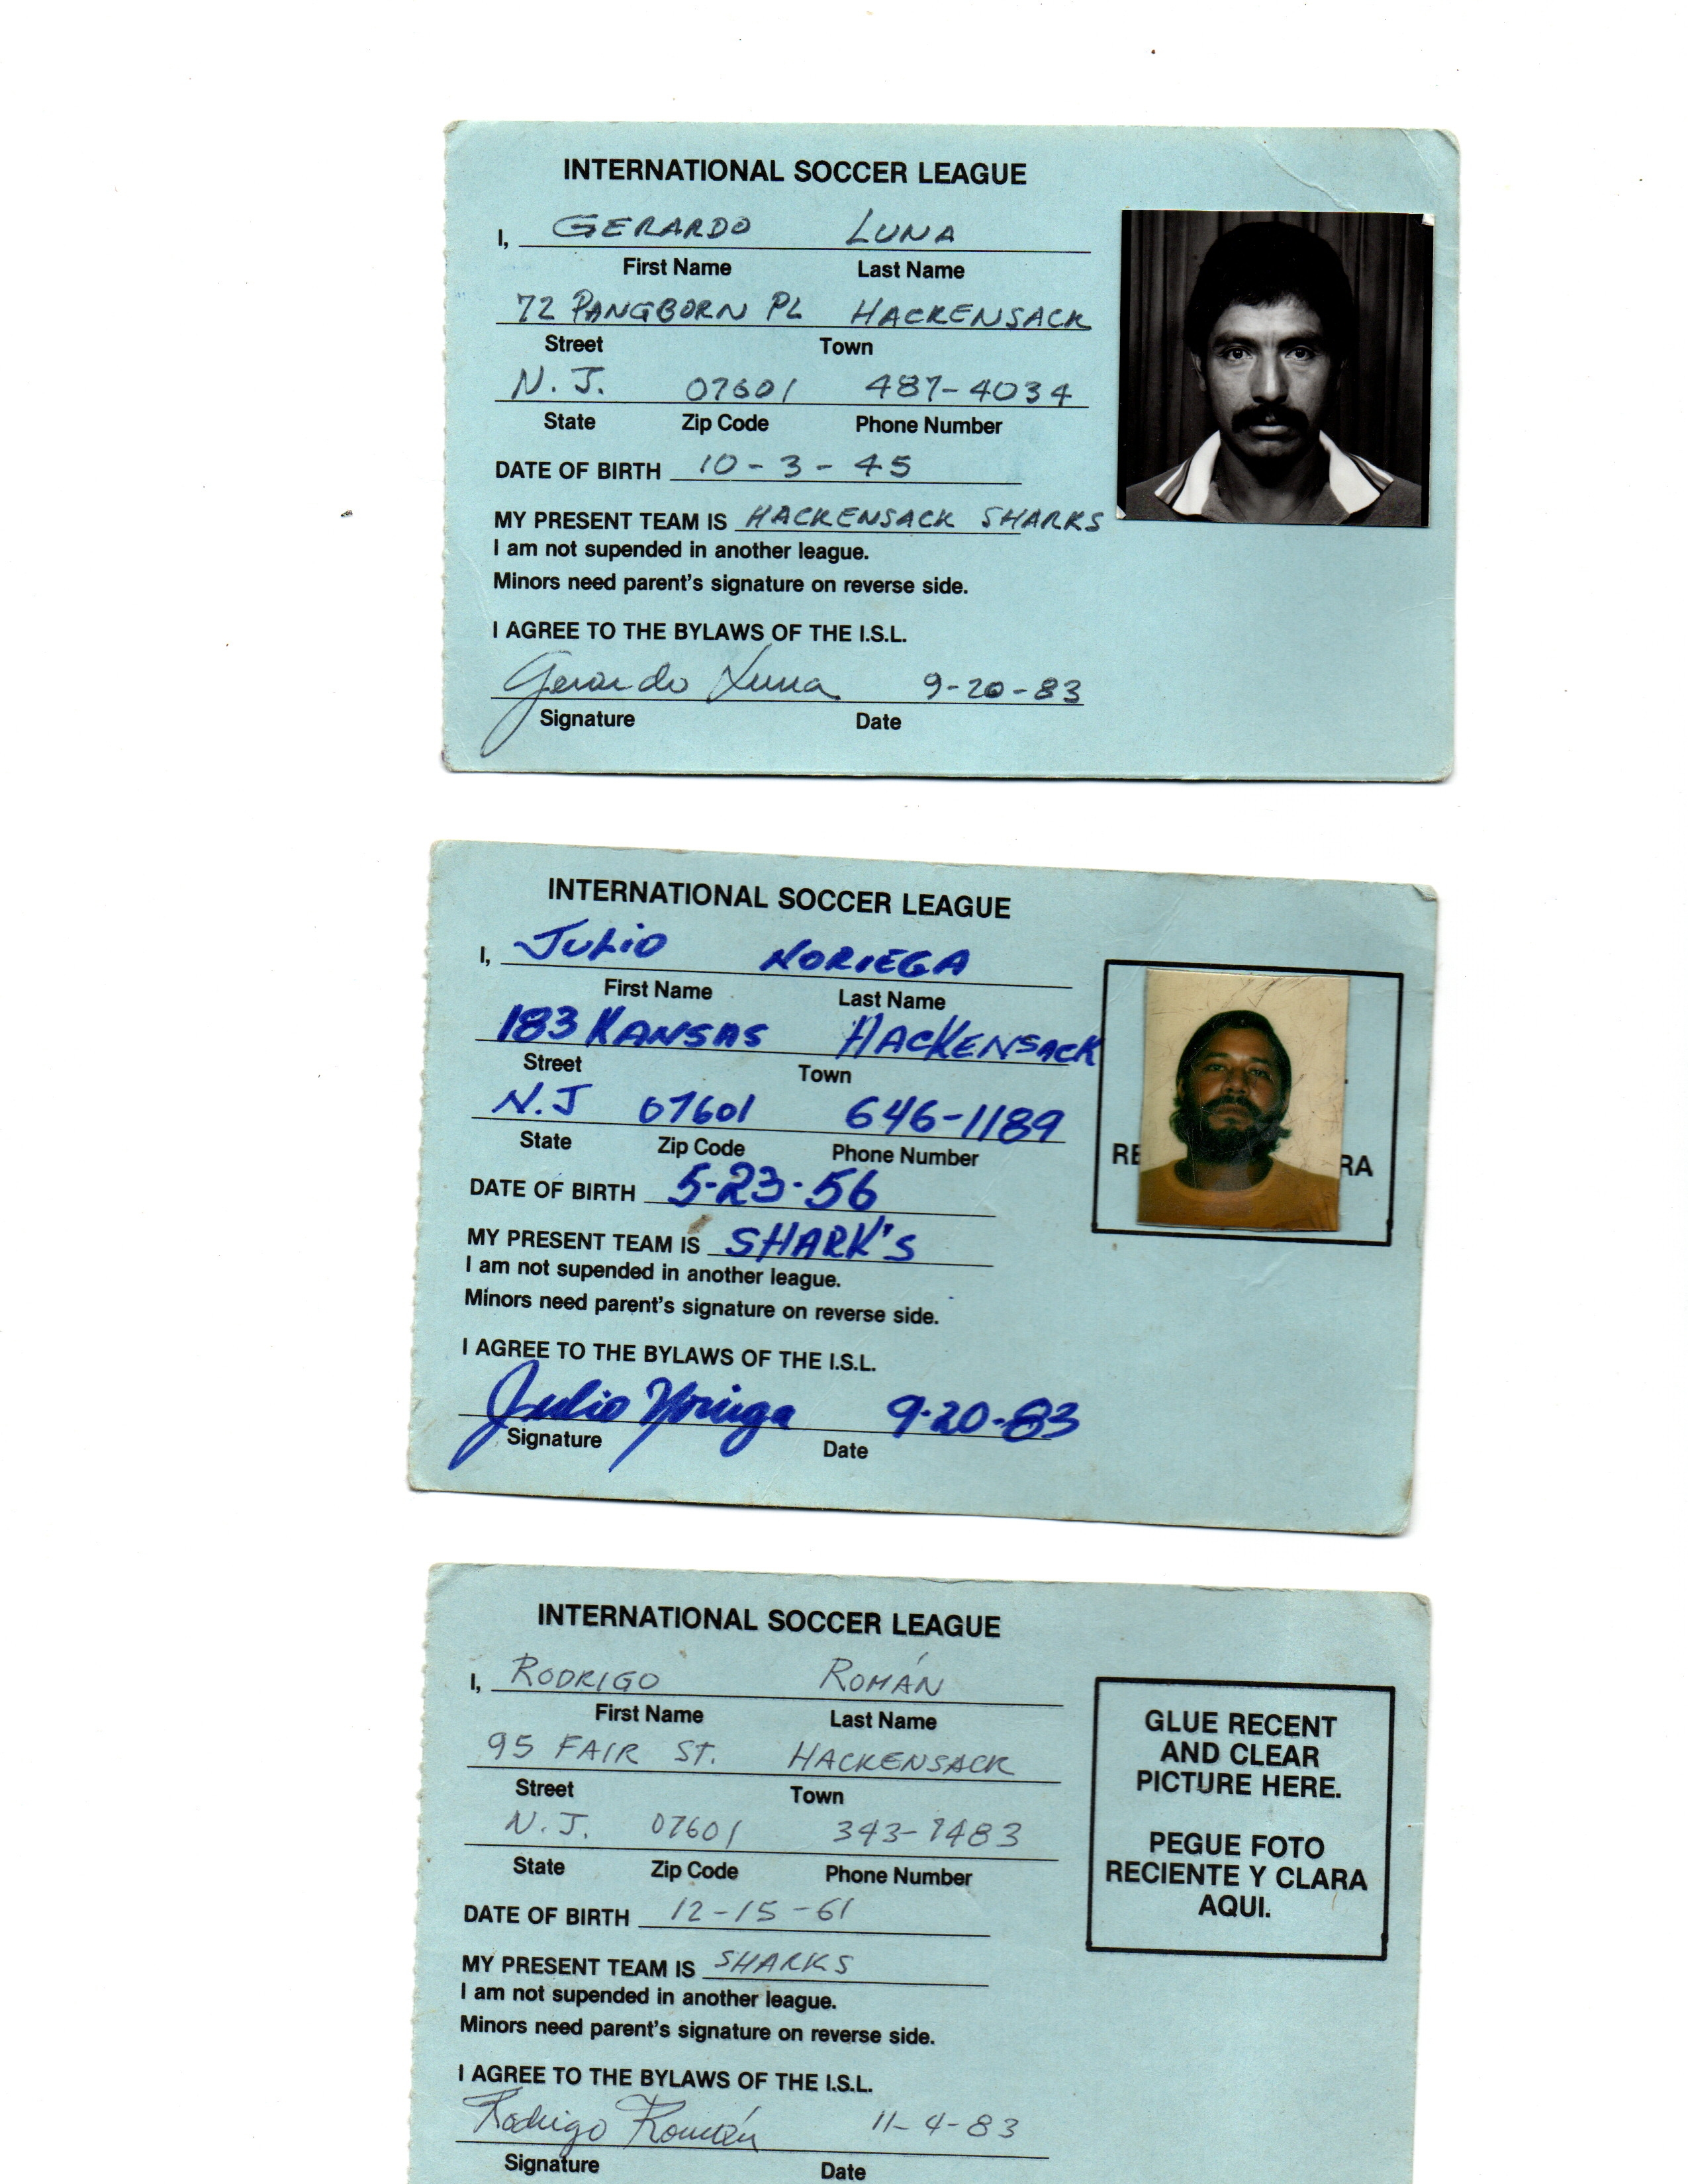 INTERNATIONAL SOCCER LEAGUE
I, GERARDO LUNA
First Name Last Name
72 PANGBORN PL HACKENSACK
Street Town
N.J. 07601 487-4034
State Zip Code Phone Number
DATE OF BIRTH 10-3-45
MY PRESENT TEAM IS HACKENSACK SHARKS
I am not supended in another league.
Minors need parent's signature on reverse side.
I AGREE TO THE BYLAWS OF THE I.S.L.
Gerardo Luna 9-20-83
Signature Date
INTERNATIONAL SOCCER LEAGUE
I, JULIO NORIEGA
First Name Last Name
183 KANSAS HACKENSACK
Street Town
N.J 07601 646-1189
State Zip Code Phone Number
RE RA
DATE OF BIRTH 5-23-56
MY PRESENT TEAM IS SHARK'S
I am not supended in another league.
Minors need parent's signature on reverse side.
I AGREE TO THE BYLAWS OF THE I.S.L.
Julio Noriega 9-20-83
Signature Date
INTERNATIONAL SOCCER LEAGUE
I, RODRIGO ROMÁN
First Name Last Name
95 FAIR ST. HACKENSACK
Street Town
N.J. 07601 343-7483
State Zip Code Phone Number
DATE OF BIRTH 12-15-61
MY PRESENT TEAM IS SHARKS
I am not supended in another league.
Minors need parent's signature on reverse side.
I AGREE TO THE BYLAWS OF THE I.S.L.
Rodrigo Román 11-4-83
Signature Date
GLUE RECENT
AND CLEAR
PICTURE HERE.
PEGUE FOTO
RECIENTE Y CLARA
AQUI.